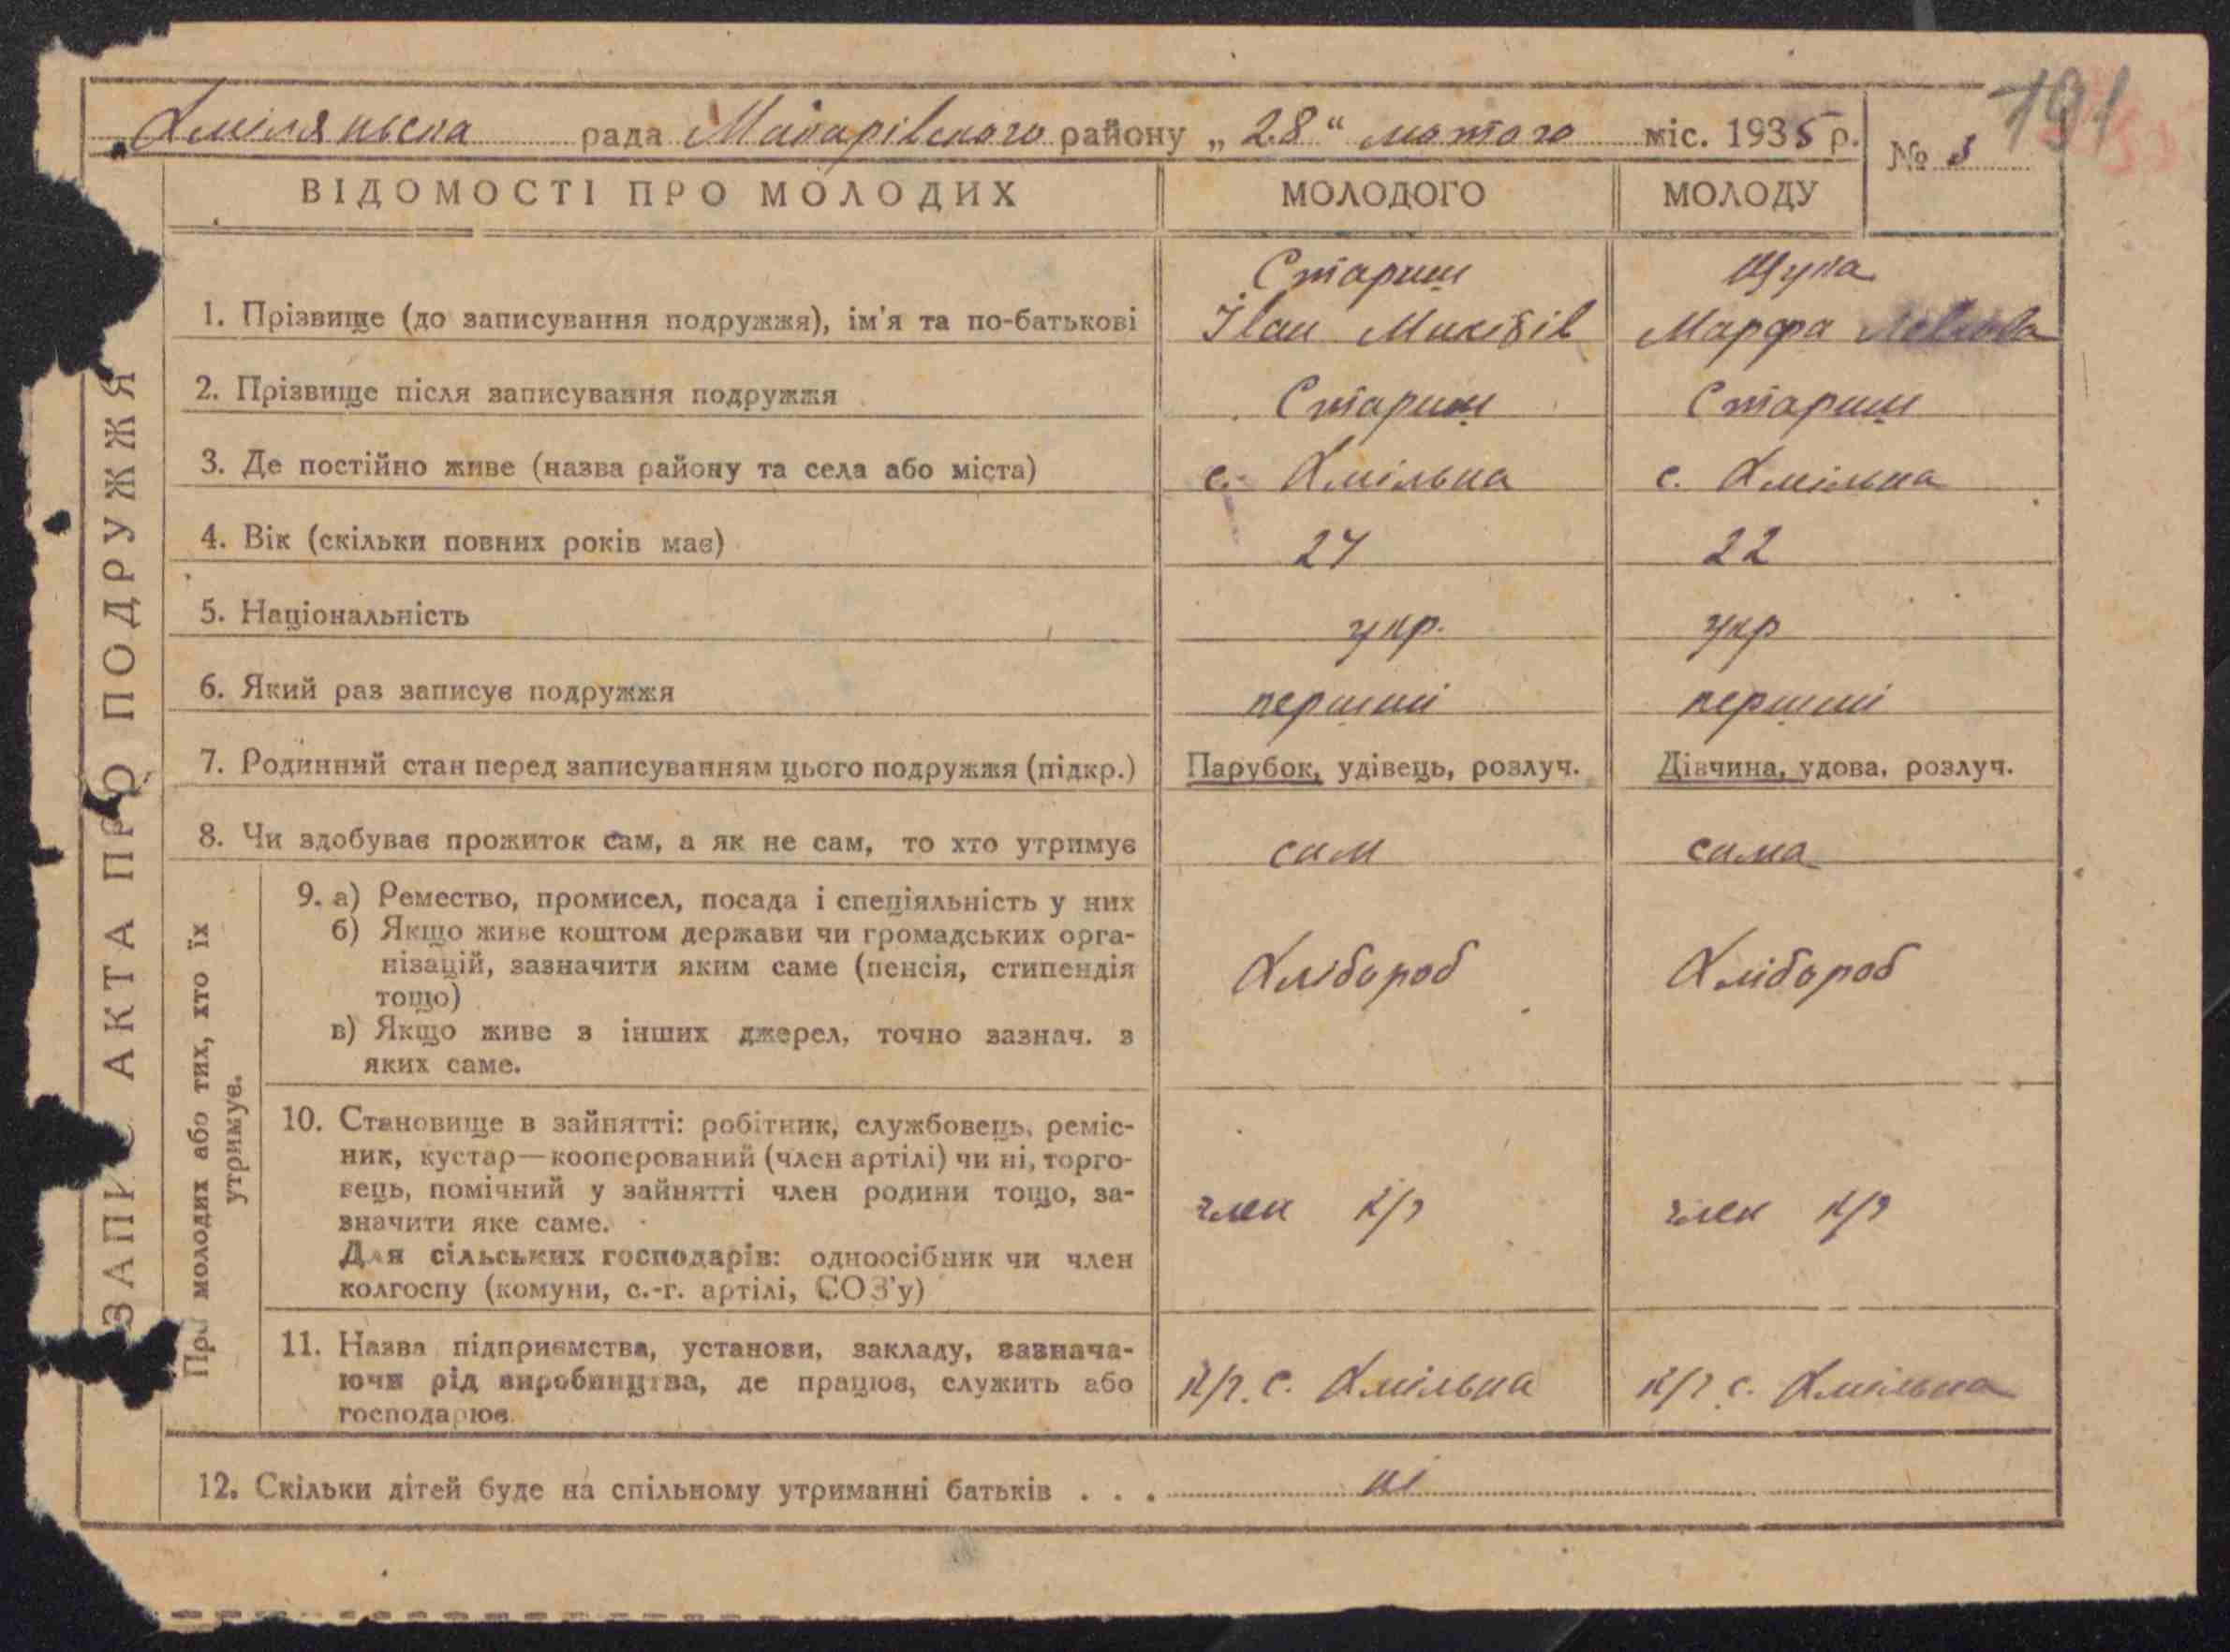 Хмілянська рада Макарівського району „28“ лютого міс. 1935 р.
№ 3
191
ВІДОМОСТІ ПРО МОЛОДИХ
МОЛОДОГО
МОЛОДУ
ЗАПИС АКТА ПРО ПОДРУЖЖЯ
1. Прізвище (до записування подружжя), ім'я та по-батькові
Стариш
Іван Микитів
Щука
Марфа
2. Прізвище після записування подружжя
Стариш
Стариш
3. Де постійно живе (назва району та села або міста)
с. Хмільна
с. Хмільна
4. Вік (скільки повних років має)
24
22
5. Національність
укр.
укр
6. Який раз записує подружжя
перший
перший
7. Родинний стан перед записуванням цього подружжя (підкр.)
Парубок, удівець, розлуч.
Дівчина, удова, розлуч.
8. Чи здобуває прожиток сам, а як не сам, то хто утримує
сам
сама
Про молодих або тих, хто їх
утримує.
9. а) Ремество, промисел, посада і спеціяльність у них
б) Якщо живе коштом держави чи громадських орга-
нізацій, зазначити яким саме (пенсія, стипендія
тощо)
в) Якщо живе з інших джерел, точно зазнач. з
яких саме.
Хлібороб
Хлібороб
10. Становище в зайнятті: робітник, службовець, реміс-
ник, кустар—кооперований (член артілі) чи ні, торго-
вець, помічний у зайнятті член родини тощо, за-
значити яке саме.
Для сільських господарів: одноосібник чи член
колгоспу (комуни, с.-г. артілі, СОЗ'у)
член к/г
член к/г
11. Назва підприємства, установи, закладу, зазнача-
ючи рід виробництва, де працює, служить або
господарює
к/г. с. Хмільна
к/г с. Хмільна
12. Скільки дітей буде на спільному утриманні батьків . . .
ні